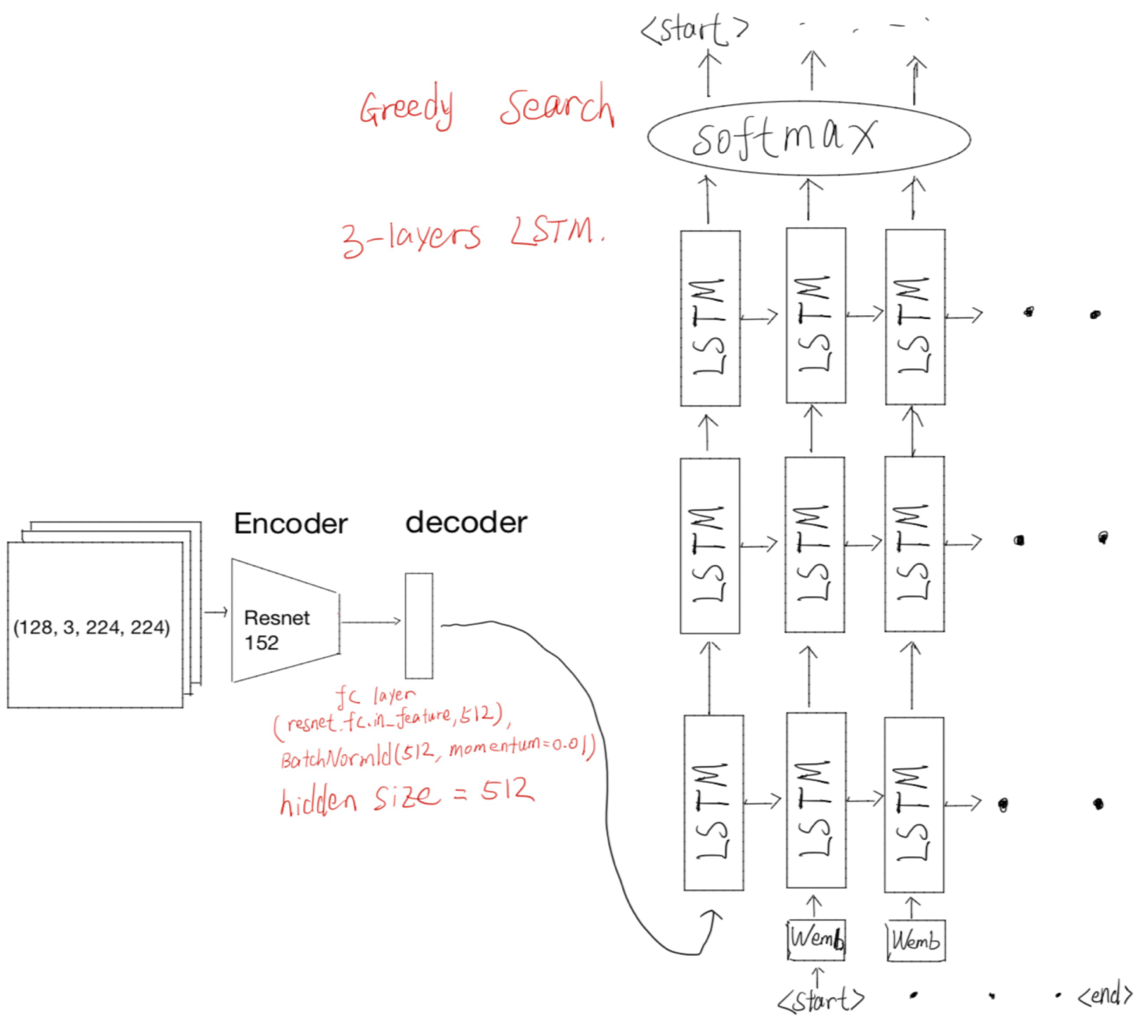 <start>
Greedy Search
softmax
3-layers LSTM.
LSTM LSTM LSTM
LSTM LSTM LSTM
Encoder decoder
(128, 3, 224, 224)
Resnet
152
fc layer
(resnet.fc.in_feature, 512),
BatchNorm1d(512, momentum=0.01)
hidden size = 512
LSTM LSTM LSTM
Wemb Wemb
<start> <end>